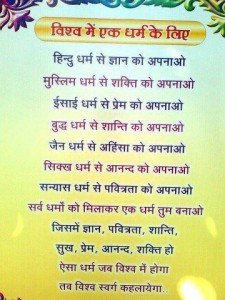 विश्व में एक धर्म के लिए
हिन्दु धर्म से ज्ञान को अपनाओ
मुस्लिम धर्म से शक्ति को अपनाओ
ईसाई धर्म से प्रेम को अपनाओ
बुद्ध धर्म से शान्ति को अपनाओ
जैन धर्म से अहिंसा को अपनाओ
सिक्ख धर्म से आनन्द को अपनाओ
सन्यास धर्म से पवित्रता को अपनाओ
सर्व धर्मों को मिलाकर एक धर्म तुम बनाओ
जिसमें ज्ञान, पवित्रता, शान्ति,
सुख, प्रेम, आनन्द, शक्ति हो
ऐसा धर्म जब विश्व में होगा
तब विश्व स्वर्ग कहलायेगा..